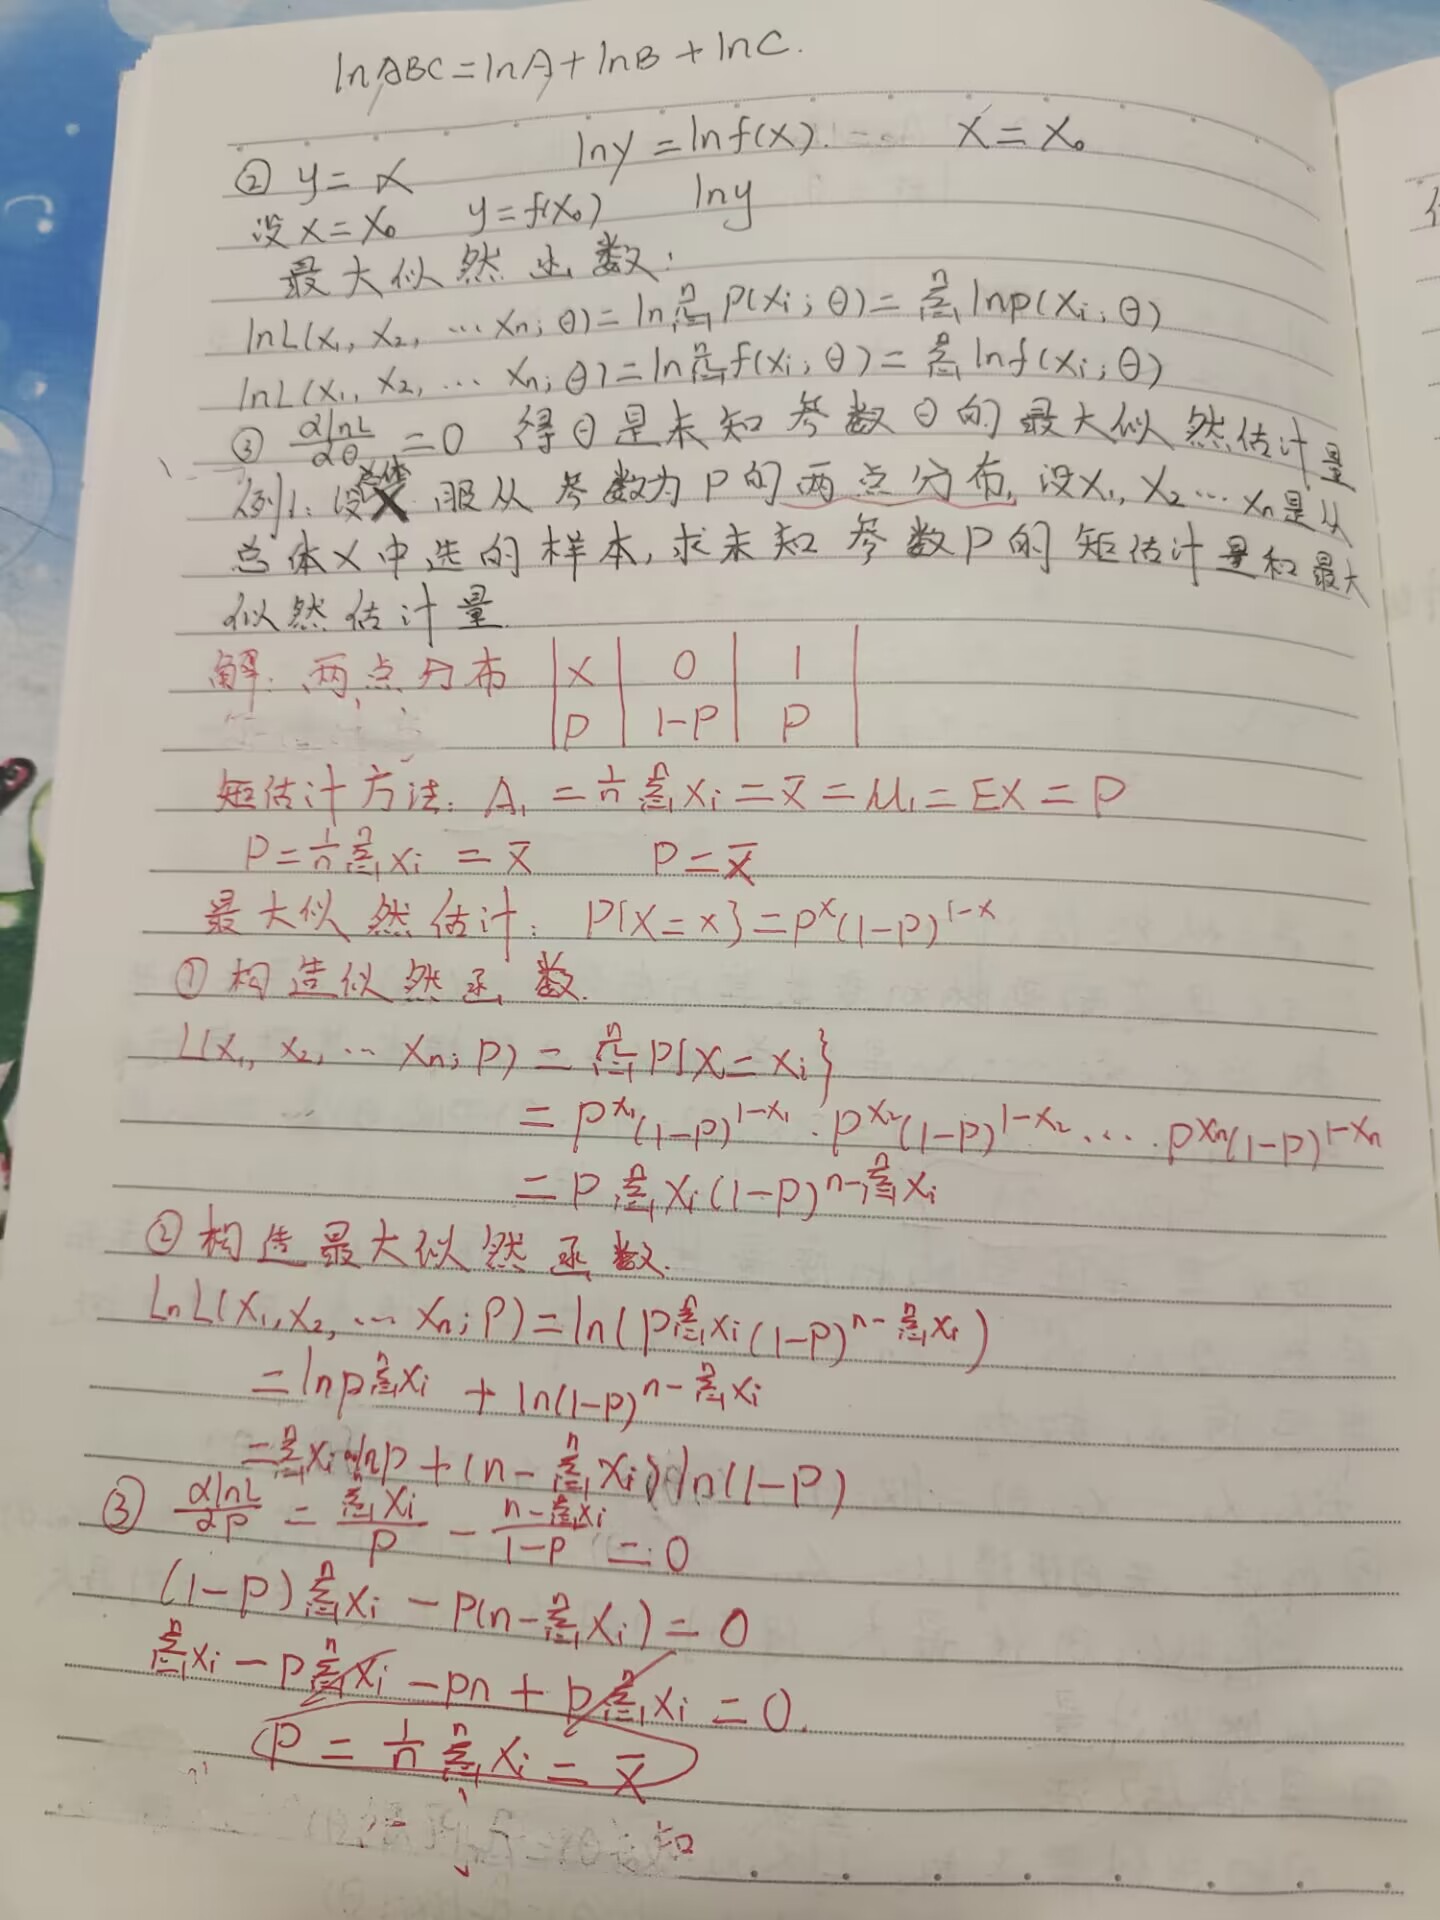 lnABC=lnA+lnB+lnC.
② y=x lny=lnf(x). x=x₀
设x=x₀ y=f(x₀) lny
最大似然函数:
lnL(x₁,x₂,…xₙ;θ)=ln∏ⁿᵢ₌₁P(xᵢ;θ)=∑ⁿᵢ₌₁lnp(xᵢ;θ)
lnL(x₁,x₂,…xₙ;θ)=ln∏ⁿᵢ₌₁f(xᵢ;θ)=∑ⁿᵢ₌₁lnf(xᵢ;θ)
③ dlnL/dθ=0 得θ是未知参数θ的最大似然估计量
例1:设总体X服从参数为P的两点分布,设x₁,x₂…xₙ是从
总体X中选的样本,求未知参数P的矩估计量和最大
似然估计量.
解:两点分布 | X | 0 | 1 |
| P | 1-P | P |
矩估计方法:A₁=1/n∑ⁿᵢ₌₁xᵢ=x̄=μ₁=EX=P
P=1/n∑ⁿᵢ₌₁xᵢ=x̄ P=x̄
最大似然估计:P{X=x}=Pˣ(1-P)¹⁻ˣ
①构造似然函数.
L(x₁,x₂,…xₙ;P)=∏ⁿᵢ₌₁P{X=xᵢ}
=P^x₁(1-P)^1-x₁·P^x₂(1-P)^1-x₂….P^xₙ(1-P)^1-xₙ
=P∑ⁿᵢ₌₁xᵢ(1-P)^n-∑ⁿᵢ₌₁xᵢ
②构造最大似然函数.
LnL(x₁,x₂,…xₙ;P)=ln(P∑ⁿᵢ₌₁xᵢ(1-P)^n-∑ⁿᵢ₌₁xᵢ)
=lnp∑ⁿᵢ₌₁xᵢ+ln(1-P)^n-∑ⁿᵢ₌₁xᵢ
=∑ⁿᵢ₌₁xᵢlnp+(n-∑ⁿᵢ₌₁xᵢ)ln(1-P)
③ dlnL/dP=∑ⁿᵢ₌₁xᵢ/P-(n-∑ⁿᵢ₌₁xᵢ)/(1-P)=0
(1-P)∑ⁿᵢ₌₁xᵢ-P(n-∑ⁿᵢ₌₁xᵢ)=0
∑ⁿᵢ₌₁xᵢ-P∑ⁿᵢ₌₁xᵢ-pn+p∑ⁿᵢ₌₁xᵢ=0.
P=1/n∑ⁿᵢ₌₁xᵢ=x̄